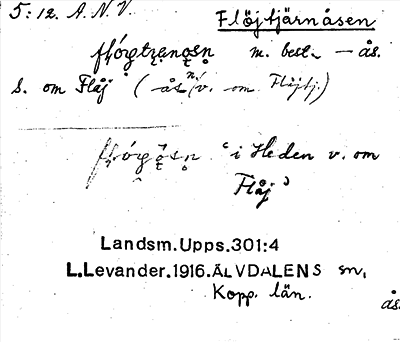 5:12. A.N.V.
Flöjtjärnåsen
m. best. – ås.
s. om Flåj (ås n.v. om Flåjtj.)
"i Heden v. om
Flåj"
Landsm.Upps.301:4
L.Levander.1916.ÄLVDALENS sn,
Kopp. län.
ås.